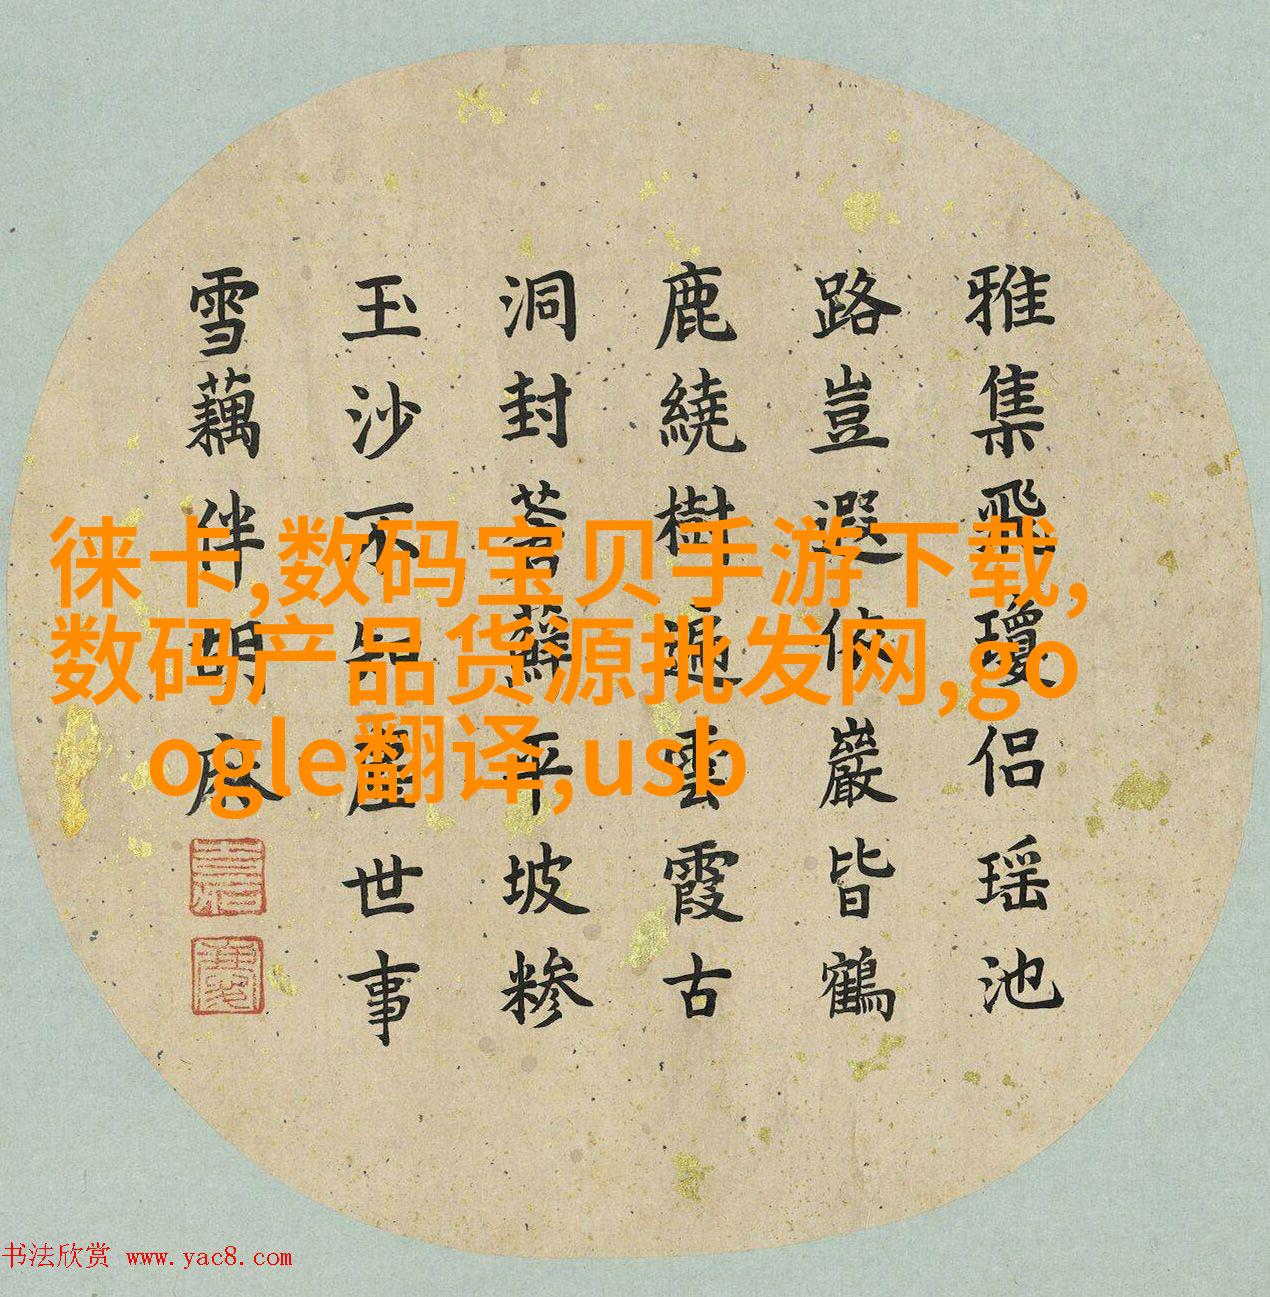 雅集飛瓊侣瑶池
路豈遐巖皆鶴
鹿繞樹遍雲霞古
洞封蒼蘚平坡糁
玉沙不塵世事
雪藕伴胡麻
徕卡,数码宝贝手游下载,
数码产品货源批发网,go
ogle翻译,usb
书法欣赏 www.yac8.com